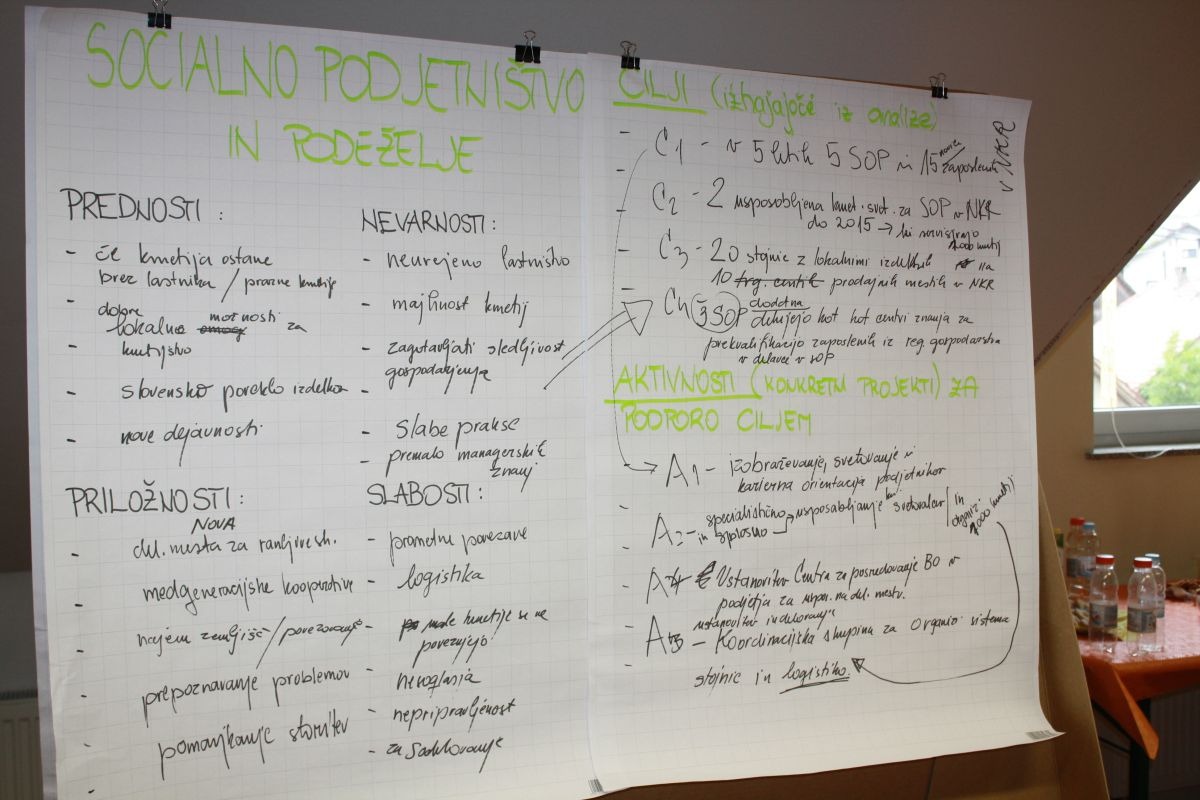 SOCIALNO PODJETNIŠTVO
IN PODEŽELJE
PREDNOSTI :
- če kmetija ostane
brez lastnika / prazne kmetije
- dobre
lokalne možnosti za
kmetijstvo
- slovensko poreklo izdelkov
- nove dejavnosti
NEVARNOSTI:
- neurejeno lastništvo
- majhnost kmetij
- zagotavljati sledljivost
gospodarjenja
- slabe prakse
- premalo managerskih
znanj
PRILOŽNOSTI :
NOVA
- del. mesta za ranljive sk.
- medgeneracijske kooperative
- najem zemljišč / povezovanje
- prepoznavanje problemov
- pomanjkanje storitev
SLABOSTI :
- prometne povezave
- logistika
- male kmetije se ne
povezujejo
- nesoglasja
- nepripravljenost
- za sodelovanje
CILJI (izhajajoče iz analize)
- C1 - v 5 letih 5 SOP in 15 novih zaposlenih
v NKR
- C2 - 2 usposobljena kmet. svet. za SOP v NKR
do 2015 →
1000 kmetij
- C3 - 20 stojnic z lokalnimi izdelki na
10 trg. centih prodajnih mestih v NKR
- C4 3 SOP dodatna
delujejo kot hot centri znanja za
prekvalifikacijo zaposlenih iz reg. gospodarstva
v delavce v SOP
AKTIVNOSTI (KONKRETNI PROJEKTI) ZA
PODPORO CILJEM
- A1 - izobraževanje, svetovanje in
karierna orientacija podjetnikov
- A2 - specialistično → usposabljanje km. svetovalcev / in
in splošno organiz. 1000 kmetij
- A4 Ustanovitev Centra za posredovanje BO v
podjetja za uspos. na del. mestu.
ustanovitev in delovanje
- A3 - Koordinacijska skupina za organiz. sistema
- stojnic in logistiko.